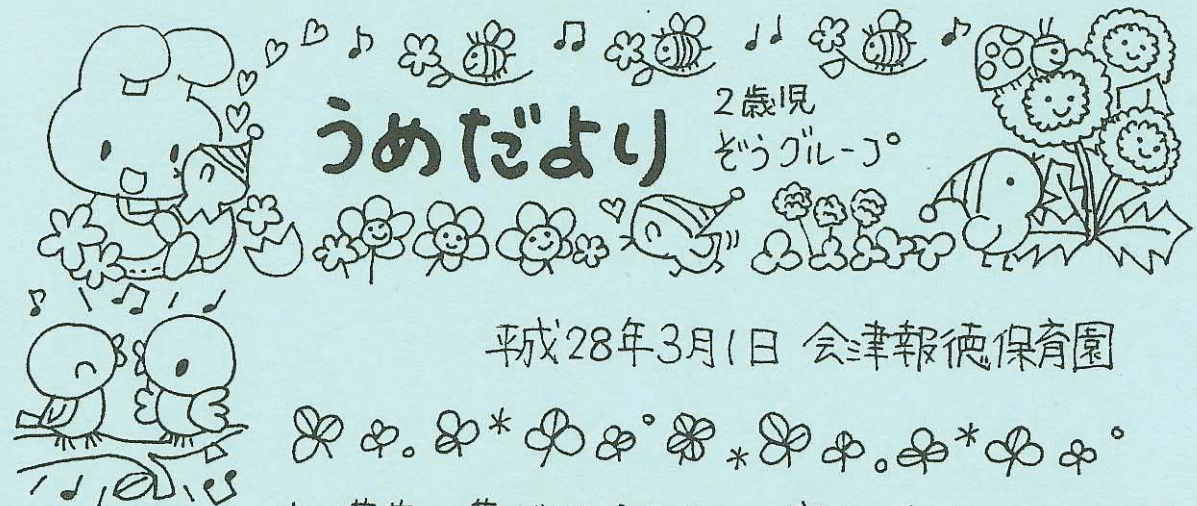 うめだより
2歳児
ぞうグループ
平成28年3月1日 会津報徳保育園